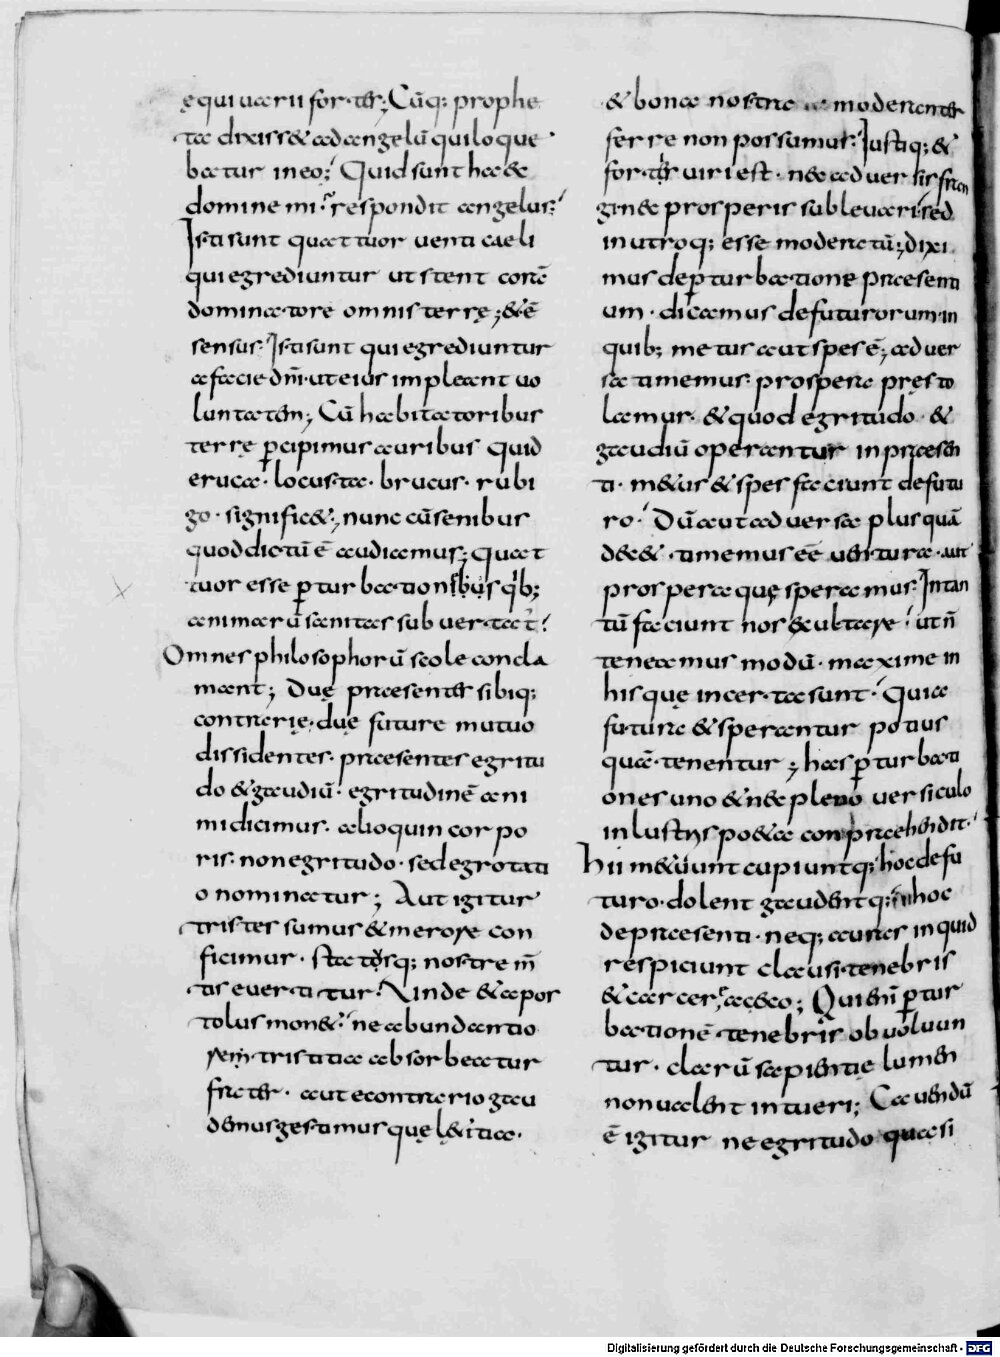 ęqui uarii fortes; Cūq; prophe
ta dixiss& ad angelū qui loque
batur in eo; Quid sunt haec
domine mi? respondit angelus;
Isti sunt quattuor venti caeli
qui egrediuntur ut stent corā
dominatore omnis terrę; & ē
sensus. Isti sunt qui egrediuntur
a facie dn̄i ut eius impleant uo
luntatem; Cū habitatoribus
terrę p̱cipimus auribus quid
eruca. locusta. brucus. rubi
go. signific&; nunc cū senibus
quod dictū ē audiamus; quat
tuor esse p̱turbationibus qib;
animarū sanitas subuertat̄?
Omnes philosophorū scole concla
mant; Duę praesentes sibiq;
contrarię. duę future mutuo
dissidentes. praesentes egritu
do & gaudiū. egritudinē ani
mi dicimus. alioquin corpo
ris. non egritudo. sed egrotati
o nominatur; Aut igitur
tristes sumus & merore con
ficimur. statusq; nostre m̄
tis evertitur. Unde & apos
tolus mon&. ne abundantio
rem tristitia absorbeatur
frater. aut econtrario gau
demus gestimusque l&itia.
& bona nostra moderanter
ferre non possumus. Iustiq; &
fortes viri est. nec adversis fran
gi nec prosperis sublevari. sed
in utroq; esse moderatū; dixi
mus de p̱turbatione praesenti
um. dicamus de futurorum. in
quib; metus aut spes ē; adver
sa timemus. prospera pręsto
lamur. & quod egritudo. &
gaudiū operantur in praesen
ti. m&us & spes faciunt de futu
ro. Dū aut adversa plus quā
dec& timemus eē ventura. aut
prospera quę speramus. In tan
tū faciunt nos exultare. ut n̄
teneamus modū. maxime in
his quę incerta sunt. Quia
futura & sperantur potius
quā tenentur; has p̱turbati
ones uno & nec pleno versiculo
inlustris po&a conpraehendit.
Hii m&uunt cupiuntq; hoc de fu
turo. dolent gaudentq; hoc
de praesenti. neq; auras inquid
respiciunt clausi tenebris
& carcere caeco; Qui eni p̱tur
bationē tenebris obvoluun
tur. clarū sapientię lumen
non valent intueri; Cavendū
ē igitur ne egritudo quasi
Digitalisierung gefördert durch die Deutsche Forschungsgemeinschaft - DFG